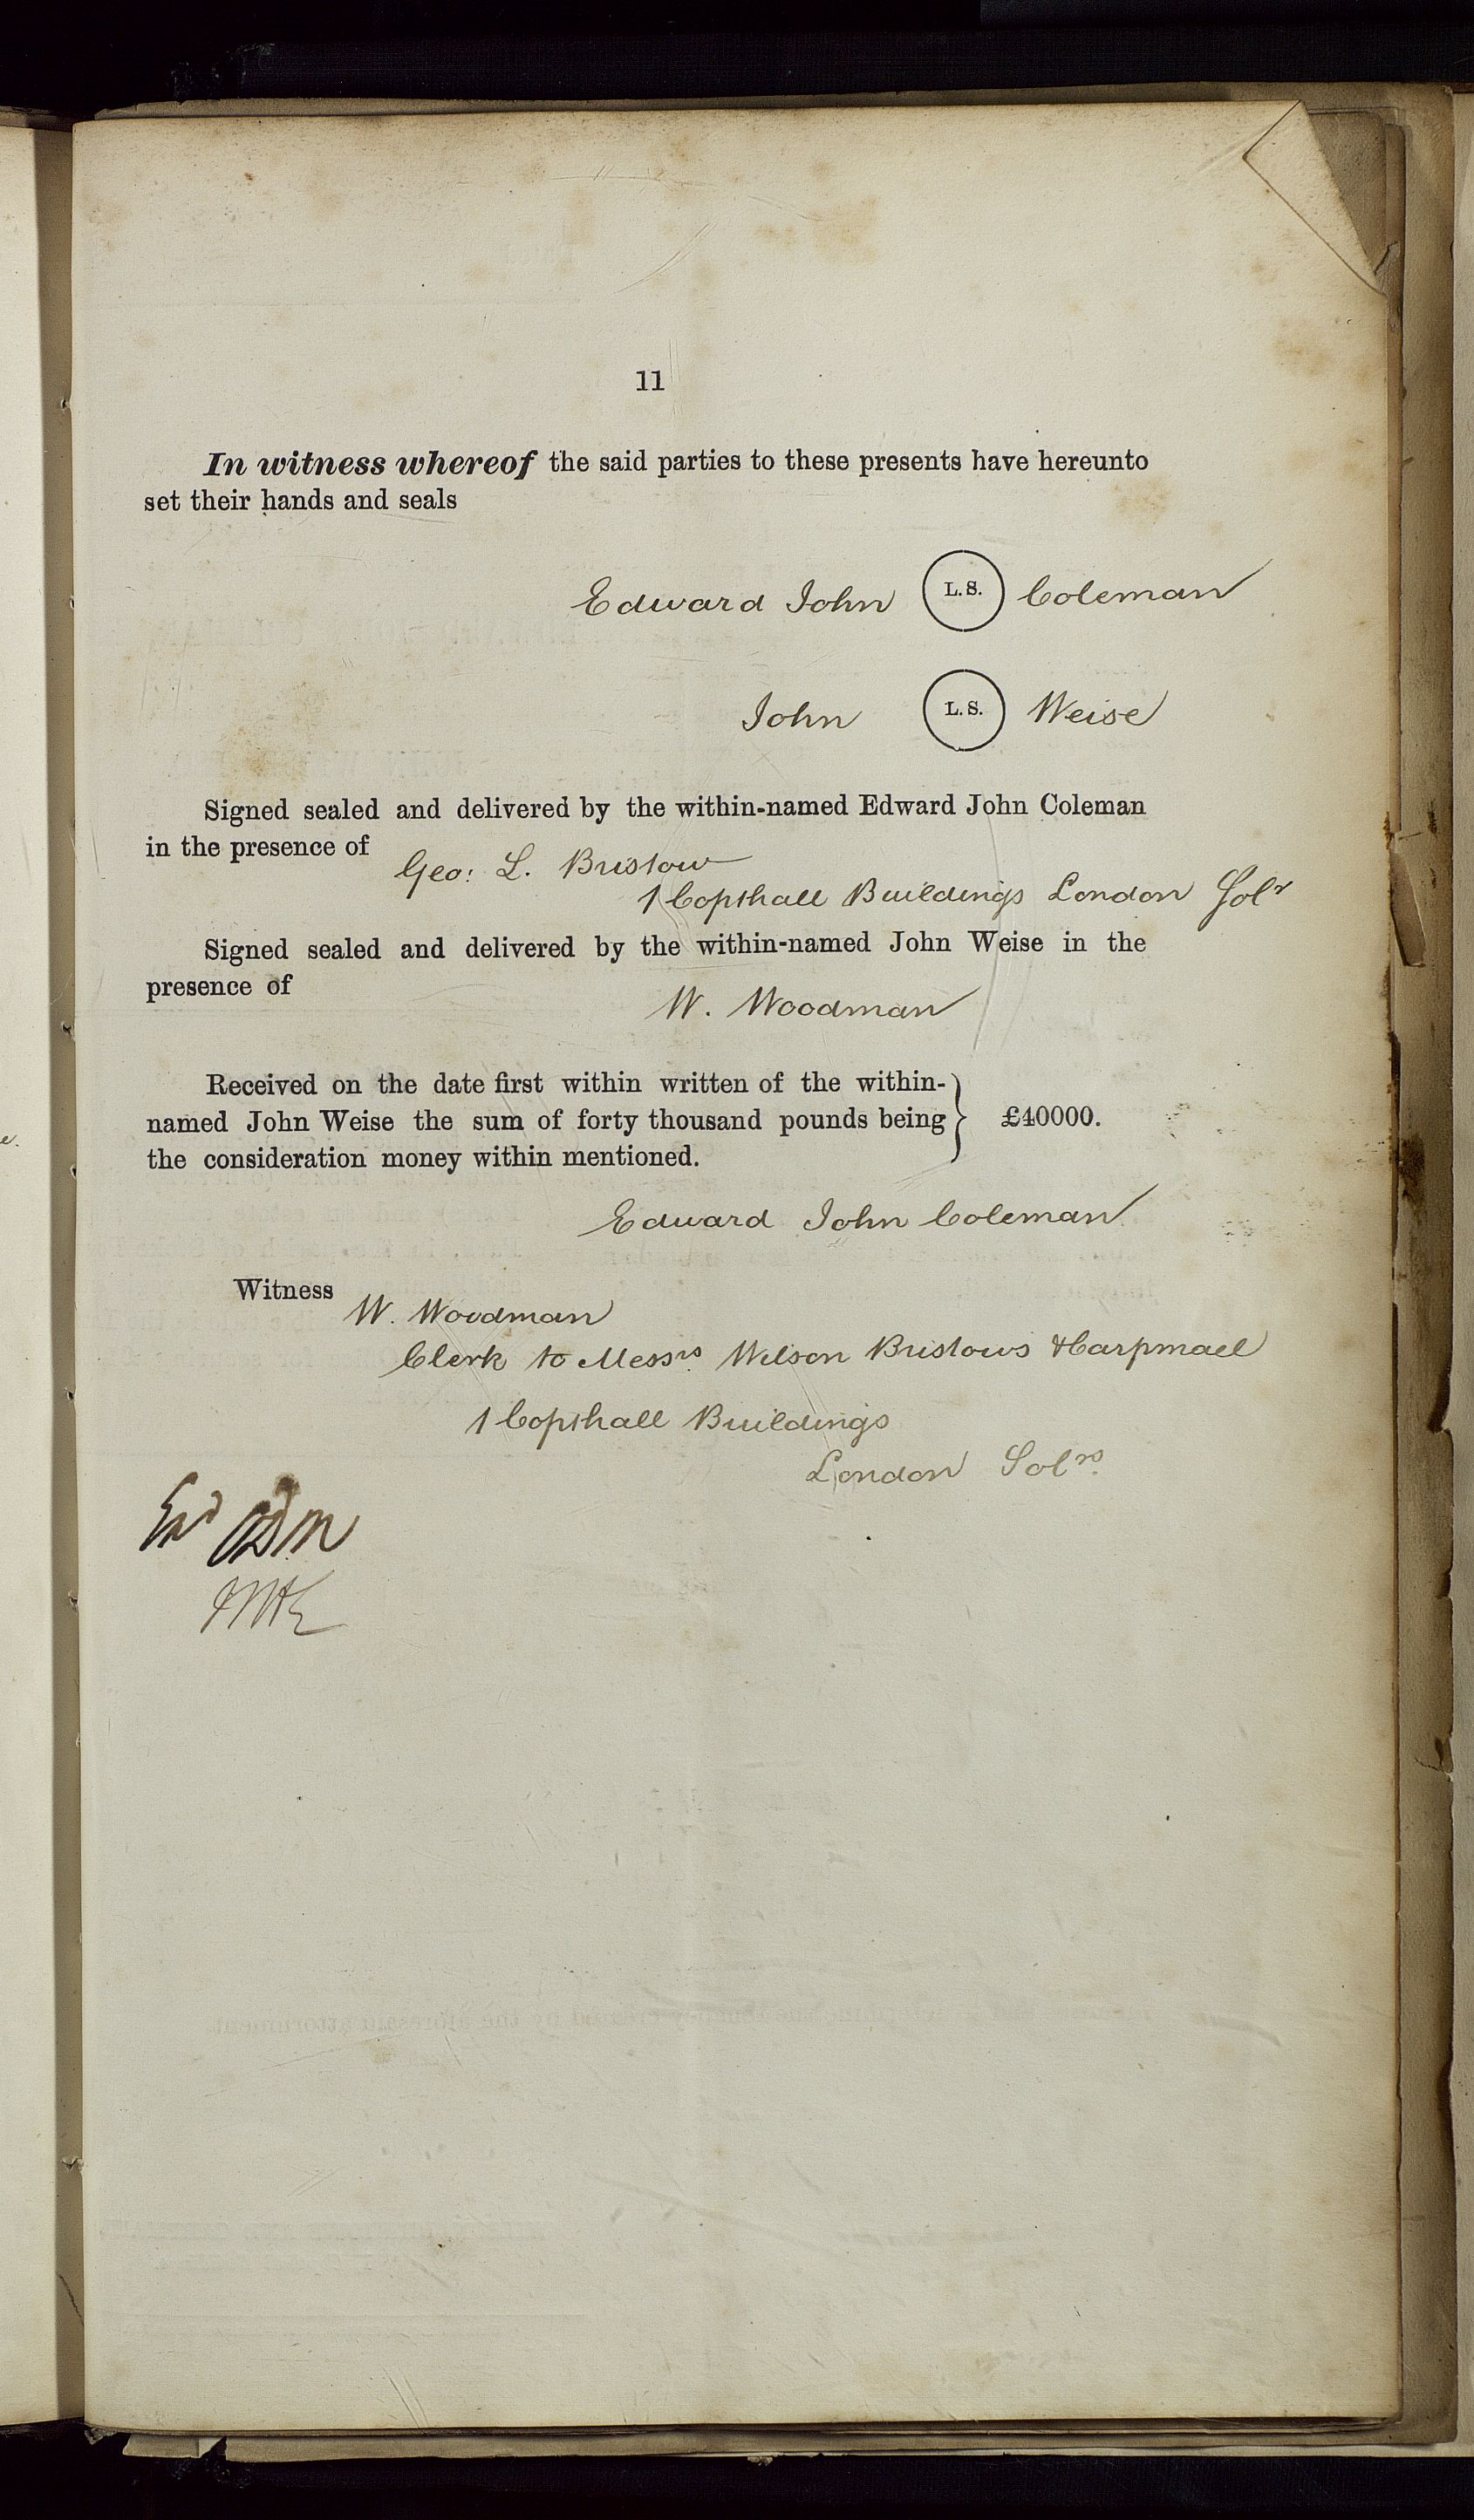 11
In witness whereof the said parties to these presents have hereunto
set their hands and seals
Edward John L.S. Coleman
John L.S. Weise
Signed sealed and delivered by the within-named Edward John Coleman
in the presence of
Geo: L. Bristow
1 Copthall Buildings London Solr
Signed sealed and delivered by the within-named John Weise in the
presence of
W. Woodman
Received on the date first within written of the within-
named John Weise the sum of forty thousand pounds being } £40000.
the consideration money within mentioned.
Edward John Coleman
Witness
W. Woodman
Clerk to Messrs Wilson Bristows & Carpmael
1 Copthall Buildings
London Solrs.